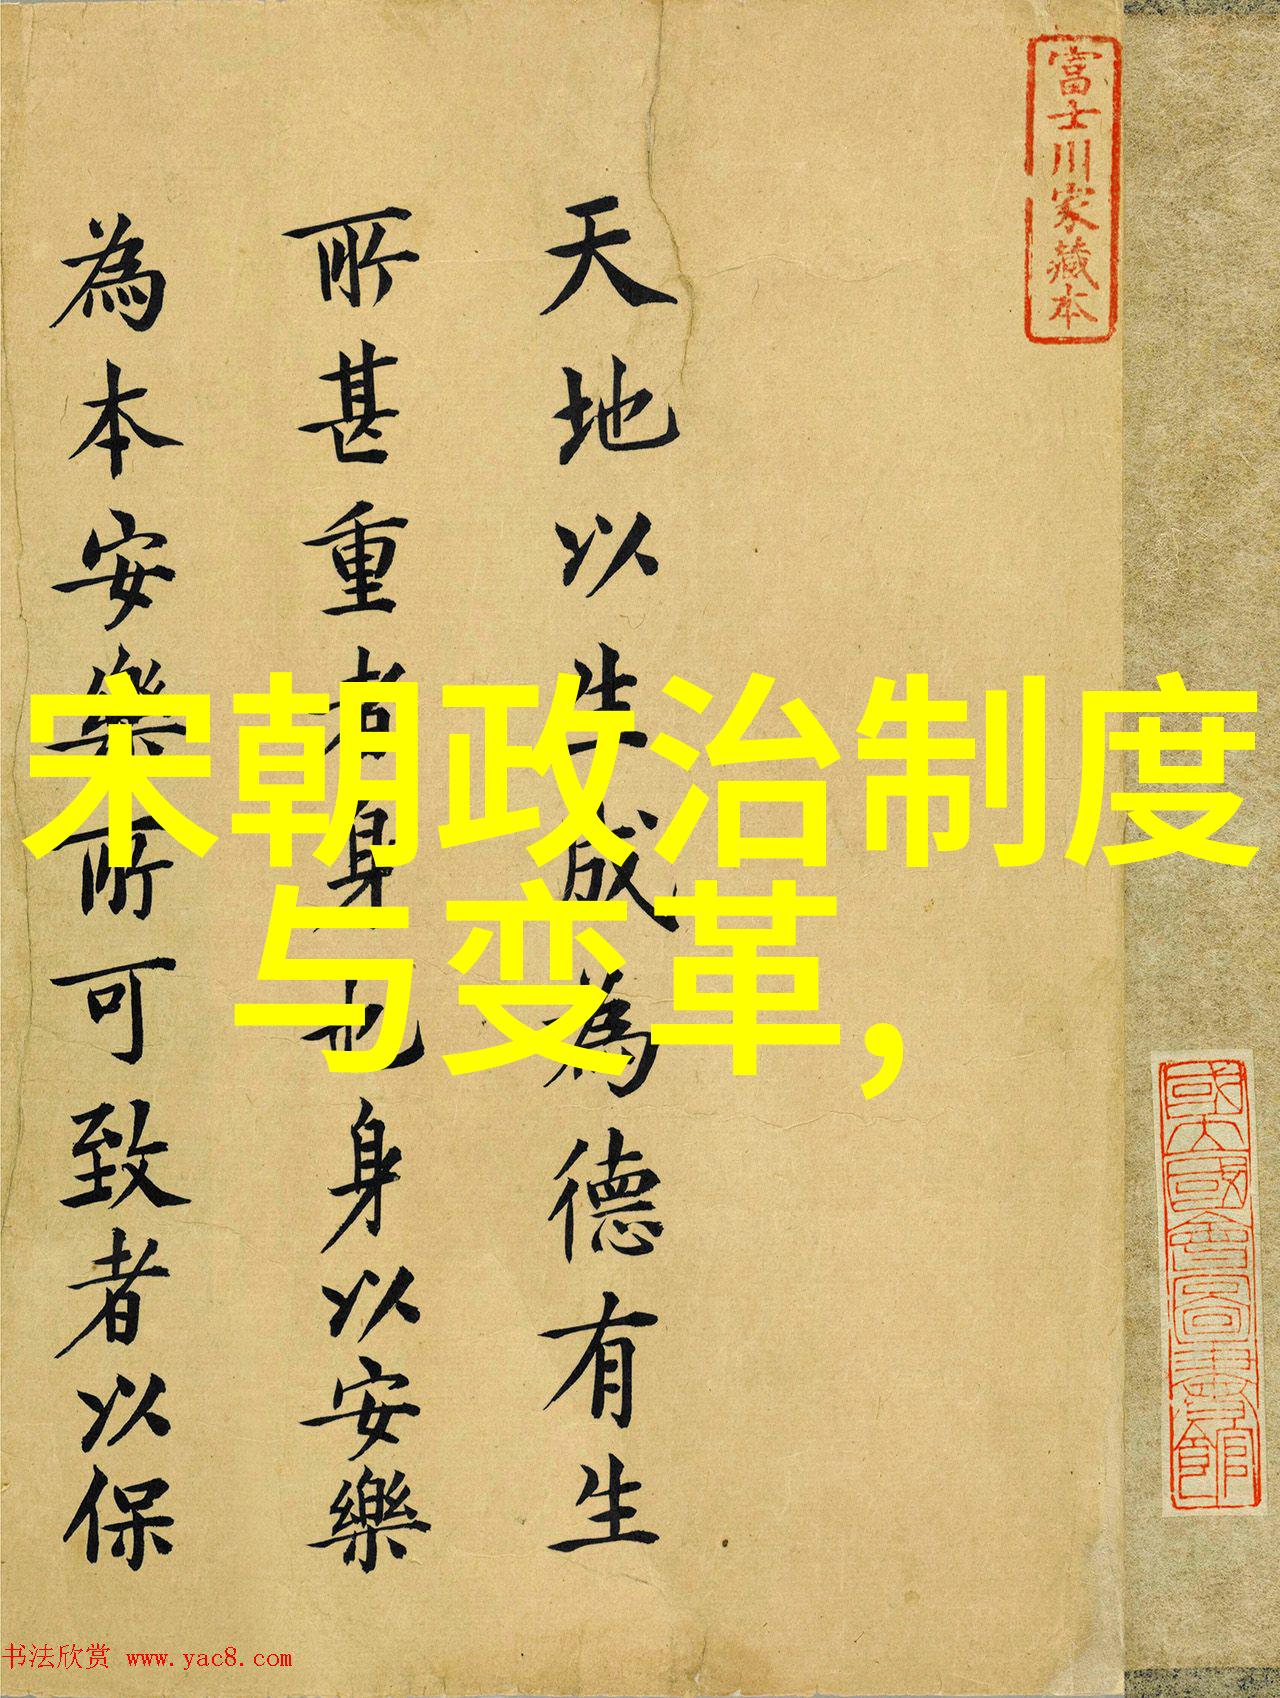 富士川家藏本
天地以生成為德有生
所甚重者身也身以安樂
為本安樂所可致者以保
宋朝政治制度
与变革，
國立國會圖書館
书法欣赏 www.yac8.com